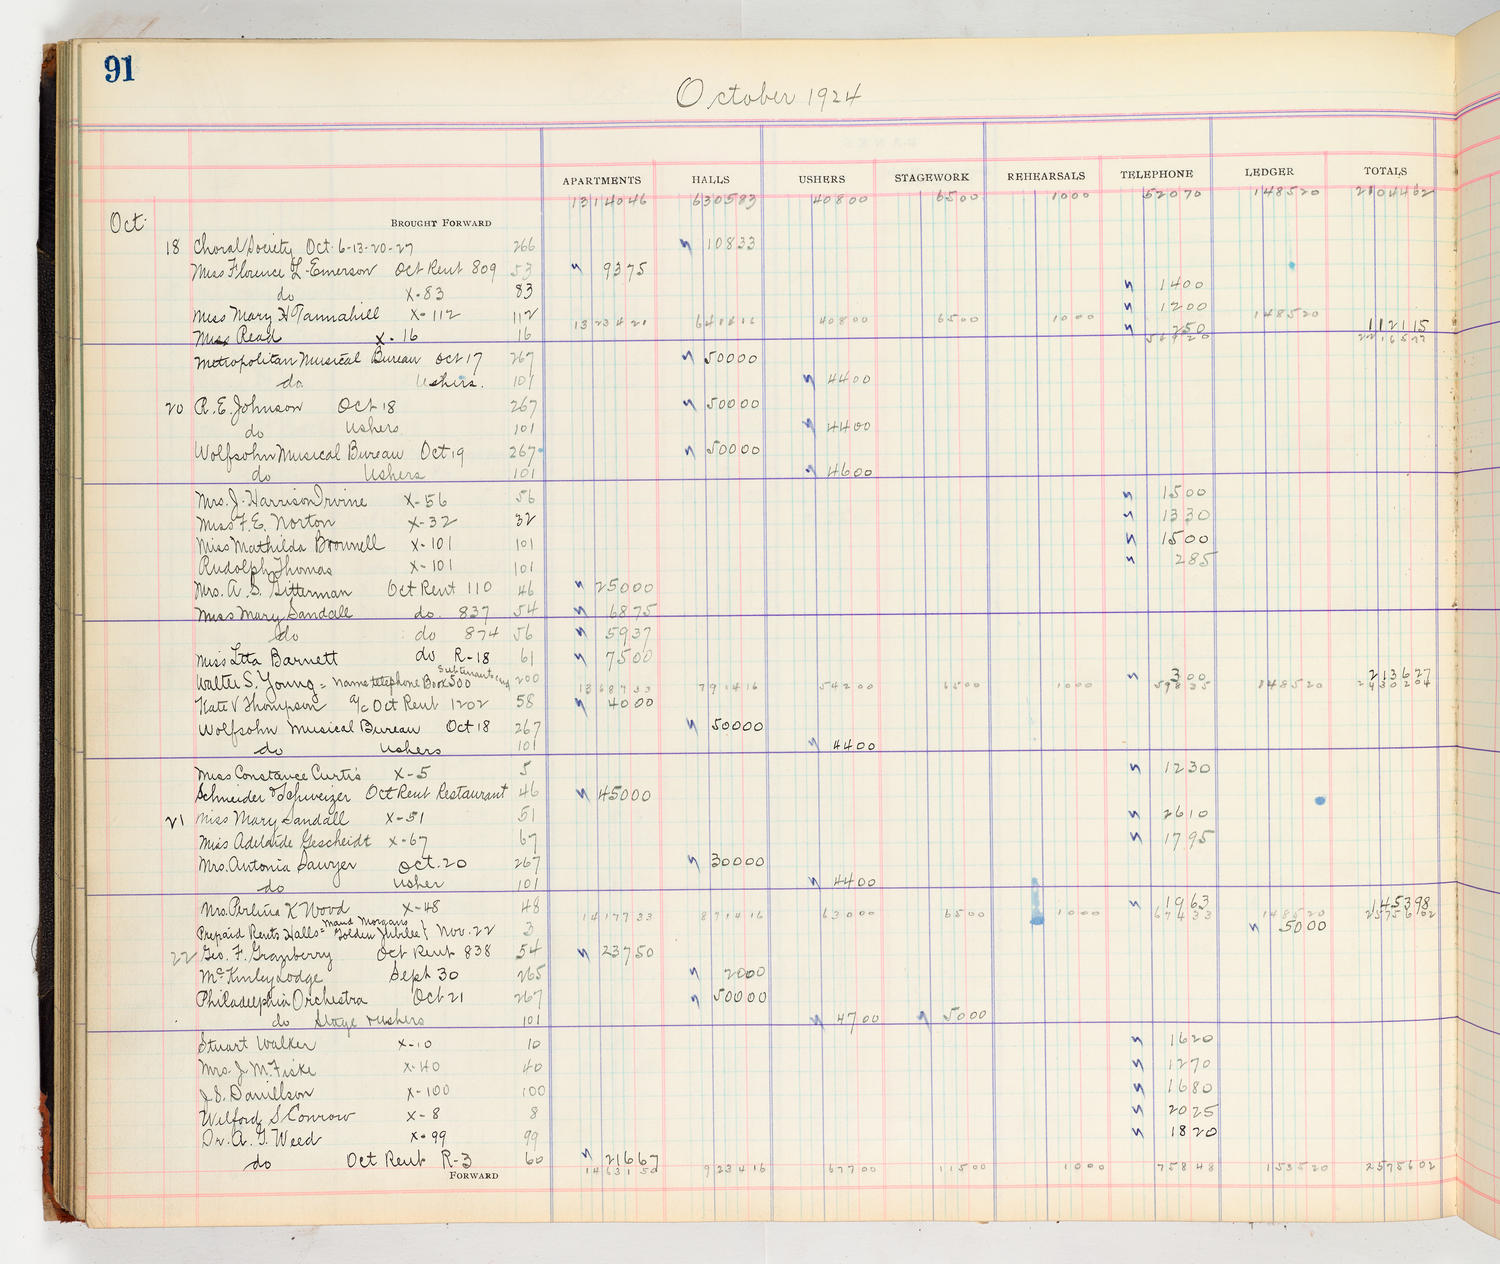 91
October 1924
APARTMENTS HALLS USHERS STAGEWORK REHEARSALS TELEPHONE LEDGER TOTALS
1314046 630583 40800 6500 1000 52070 148520 2104462
Oct. BROUGHT FORWARD
18 Choral Society Oct. 6-13-20-27 266 10833
Miss Florence L. Emerson Oct Rent 809 53 9375
do X-83 83 1400
Miss Mary H Tannahill X-112 112 1200
1323421 641416 40800 6500 1000 148520
Miss Read X-16 16 250 112115
Metropolitan Musical Bureau Oct 17 267 50000
do Ushers. 101 4400
20 R. E. Johnson Oct 18 267 50000
do Ushers 101 4400
Wolfsohn Musical Bureau Oct 19 267 50000
do Ushers 101 4600
Mrs. J. Harrison Irvine X-56 56 1500
Miss F. E. Norton X-32 32 1330
Miss Mathilda Brownell X-101 101 1500
Rudolph Thomas X-101 101 285
Mrs. A. S. Gitterman Oct Rent 110 46 25000
Miss Mary Sandall do. 837 54 6875
do do 874 56 5937
Miss Etta Barnett do R-18 61 7500
Walter S. Young = name telephone Book 500 200 300 213627
1368733 791416 54200 6500 1000 59835 148520 2430204
Kate V Thompson a/c Oct Rent 1202 58 4000
Wolfsohn Musical Bureau Oct 18 267 50000
do Ushers 101 4400
Miss Constance Curtis X-5 5 1230
Schneider & Schweizer Oct Rent Restaurant 46 45000
21 Miss Mary Sandall X-51 51 2610
Miss Adelaide Gescheidt X-67 67 1795
Mrs. Antonia Sawyer Oct. 20 267 30000
do Usher 101 4400
Mrs. Perlina K Wood X-48 48 1963 145398
1417733 871416 63000 6500 1000 67433 148520 2575602
Prepaid Rents Halls = Maud Morgans Golden Jubilee } Nov. 22 3 5000
22 Geo. F. Granberry Oct Rent 838 54 23750
McKinley Lodge Sept 30 265 2000
Philadelphia Orchestra Oct 21 267 50000
do Stage & ushers 101 4700 5000
Stuart Walker X-10 10 1620
Mrs. J. M. Fiske X-40 40 1270
J. S. Danielson X-100 100 1680
Wilford S Conrow X-8 8 2025
Dr. A. G. Weed X-99 99 1820
do Oct Rent R-3 60 21667
FORWARD 1463150 923416 67700 11500 1000 75848 153520 2575602